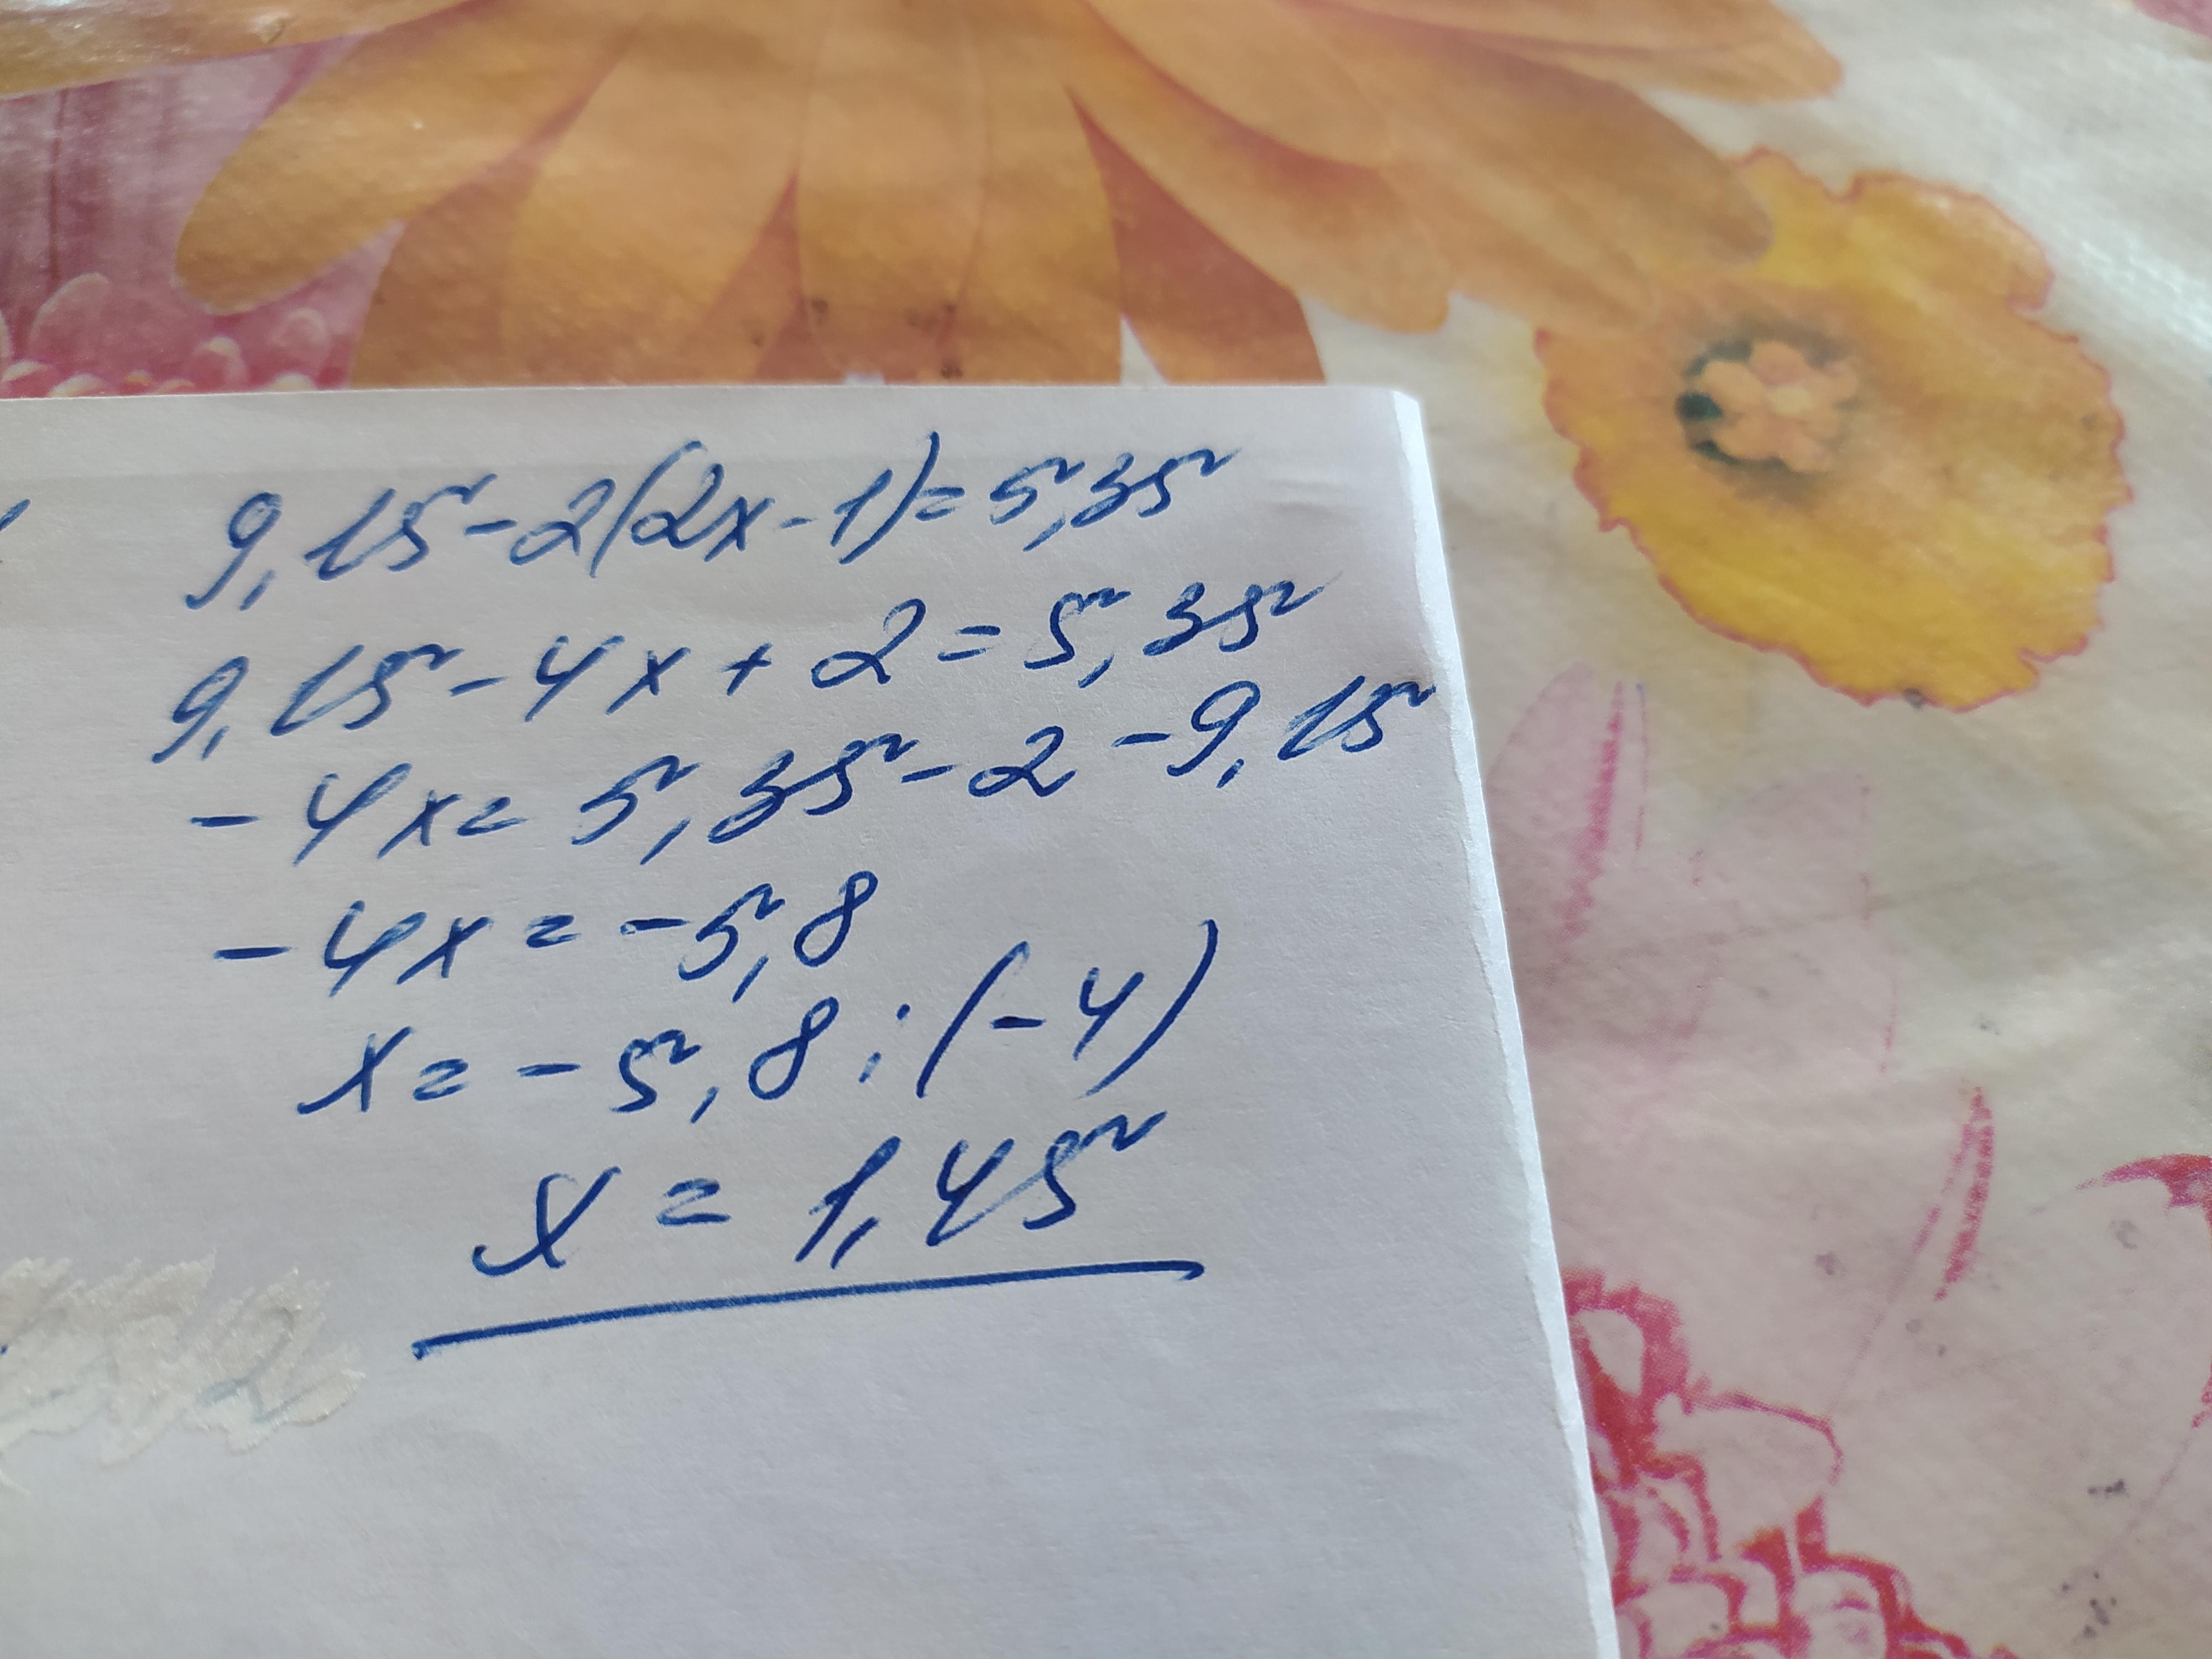 9,15-2(2x-1)=5,35
9,15-4x+2=5,35
-4x=5,35-2-9,15
-4x=-5,8
x=-5,8:(-4)
x=1,45